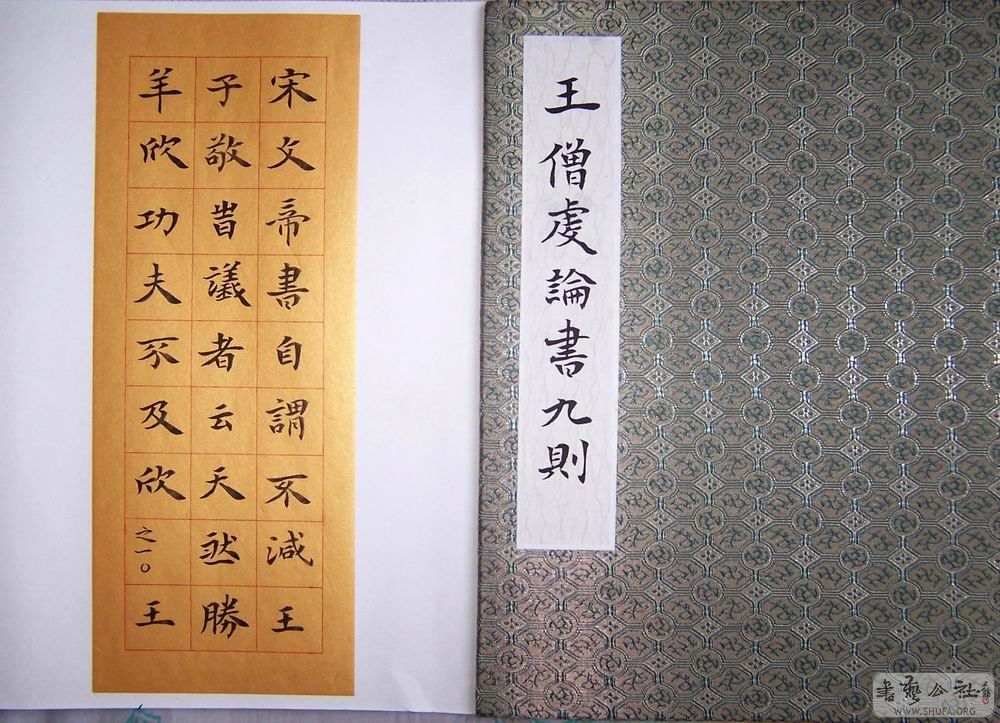 王僧虔論書九則
宋文帝書自謂不減王
子敬旹議者云天然勝
羊欣功夫不及欣之一〇王
書藝公社
WWW.SHUFA.ORG